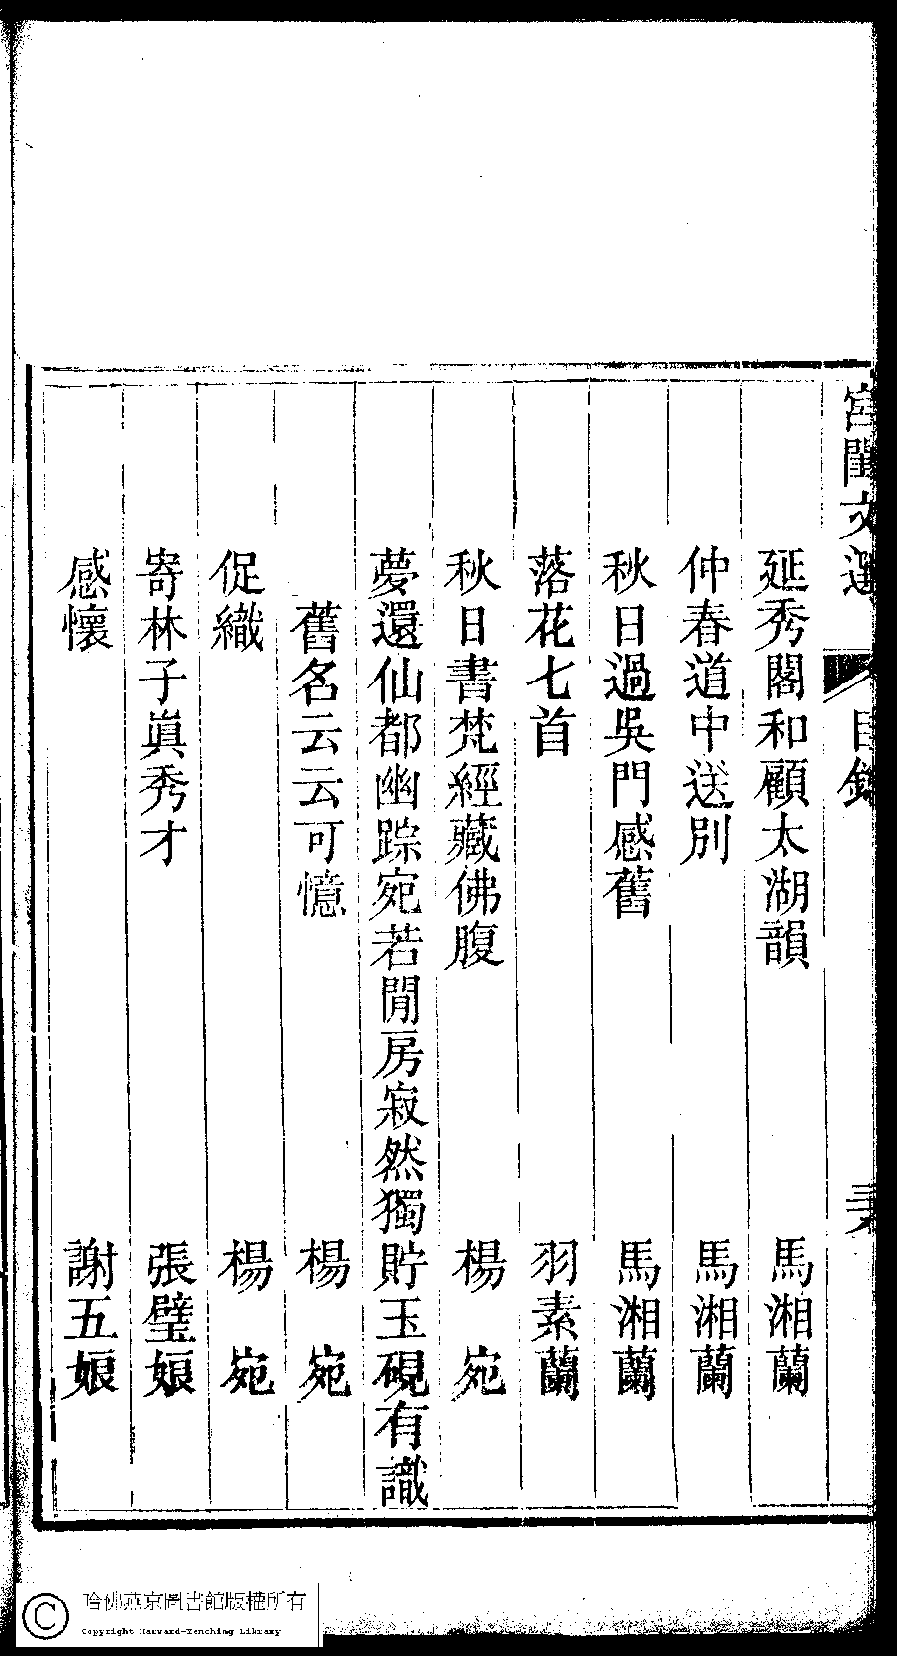 宮閨文選
目錄
延秀閣和顧太湖韻 馬湘蘭
仲春道中送別 馬湘蘭
秋日過吳門感舊 馬湘蘭
落花七首 羽素蘭
秋日書梵經藏佛腹 楊宛
夢還仙都幽踪宛若閒房寂然獨貯玉硯有識
舊名云云可憶 楊宛
促織 楊宛
寄林子眞秀才 張璧娘
感懷 謝五娘
哈佛燕京圖書館版權所有
Copyright Harvard-Yenching Library